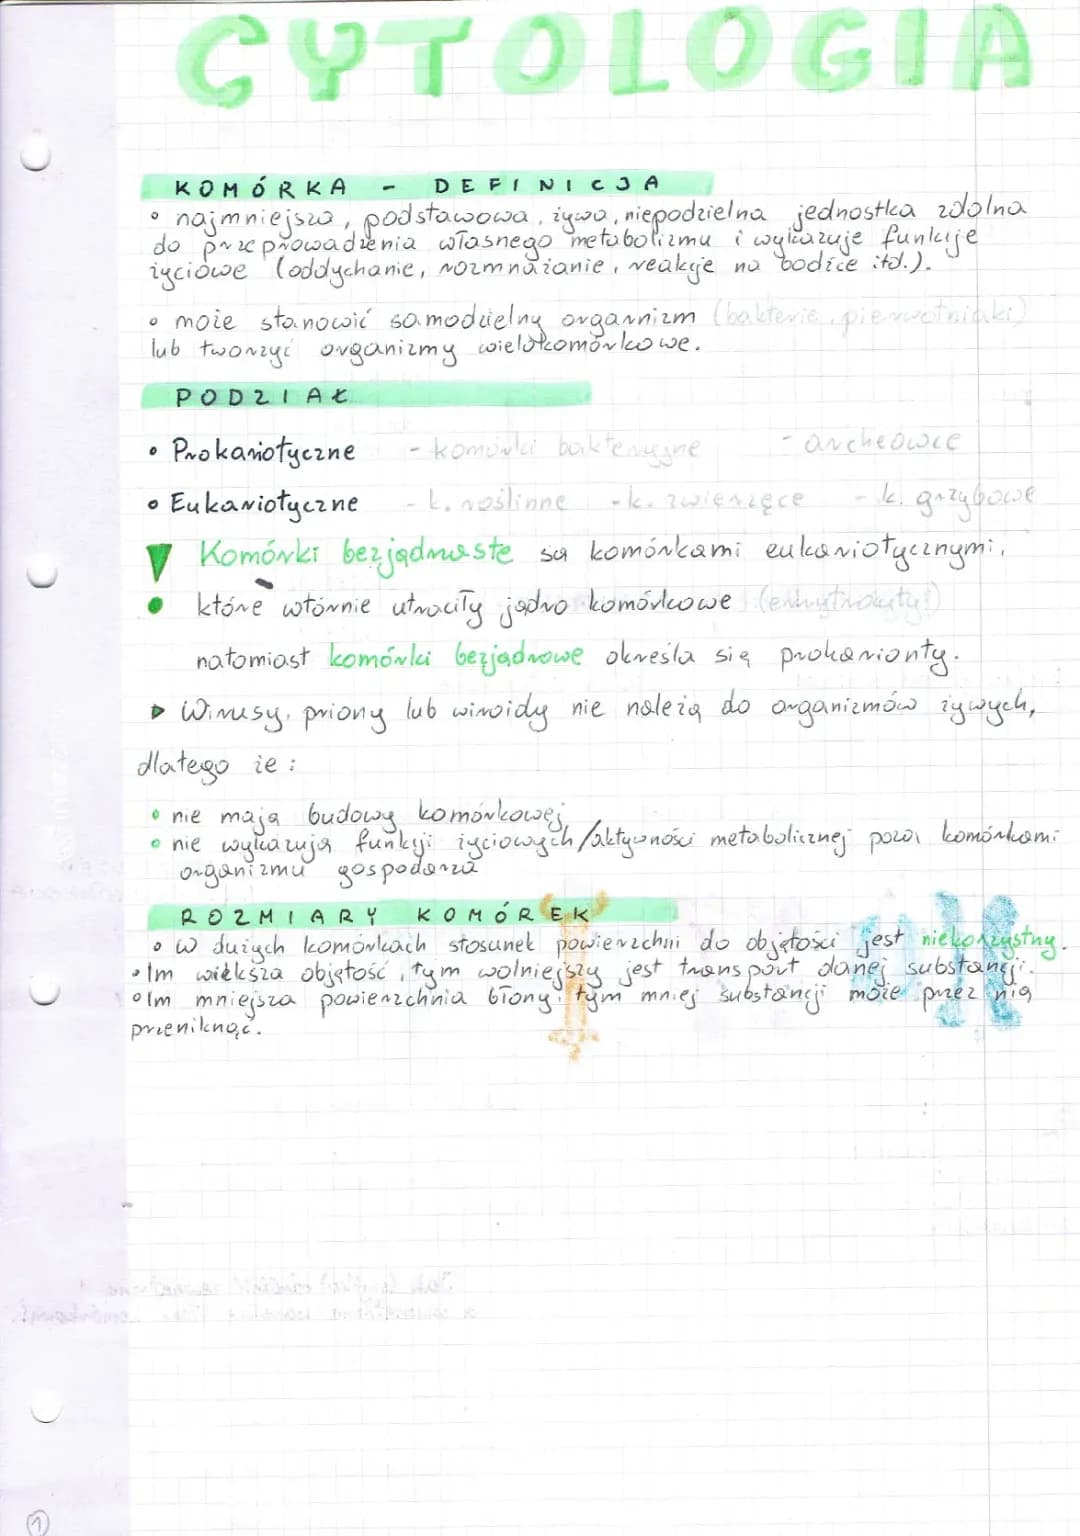 CYTOLOGIA
KOMÓRKA - DEFINICJA
• najmniejsza, podstawowa, żywa, niepodzielna jednostka zdolna
do przeprowadzenia własnego metabolizmu i wykazuje funkcje
życiowe (oddychanie, rozmnażanie, reakcje na bodźce itd.).
• może stanowić samodzielny organizm (bakterie, pierwotniaki)
lub tworzyć organizmy wielokomórkowe.
PODZIAŁ
• Prokariotyczne - komórki bakteryjne - archeowce
• Eukariotyczne - k. roślinne - k. zwierzęce - k. grzybowe
Komórki bezjądrzaste są komórkami eukariotycznymi,
które wtórnie utraciły jądro komórkowe (erytrocyty!)
natomiast komórki bezjądrowe określa się prokarionty.
▷ Wirusy, priony lub wiroidy nie należą do organizmów żywych,
dlatego że:
• nie mają budowy komórkowej
• nie wykazują funkcji życiowych/aktywności metabolicznej poza komórkami
organizmu gospodarza
ROZMIARY KOMÓREK
• w dużych komórkach stosunek powierzchni do objętości jest niekorzystny.
• Im większa objętość, tym wolniejszy jest transport danej substancji.
• Im mniejsza powierzchnia błony, tym mniej substancji może przez nią
przeniknąć.
1